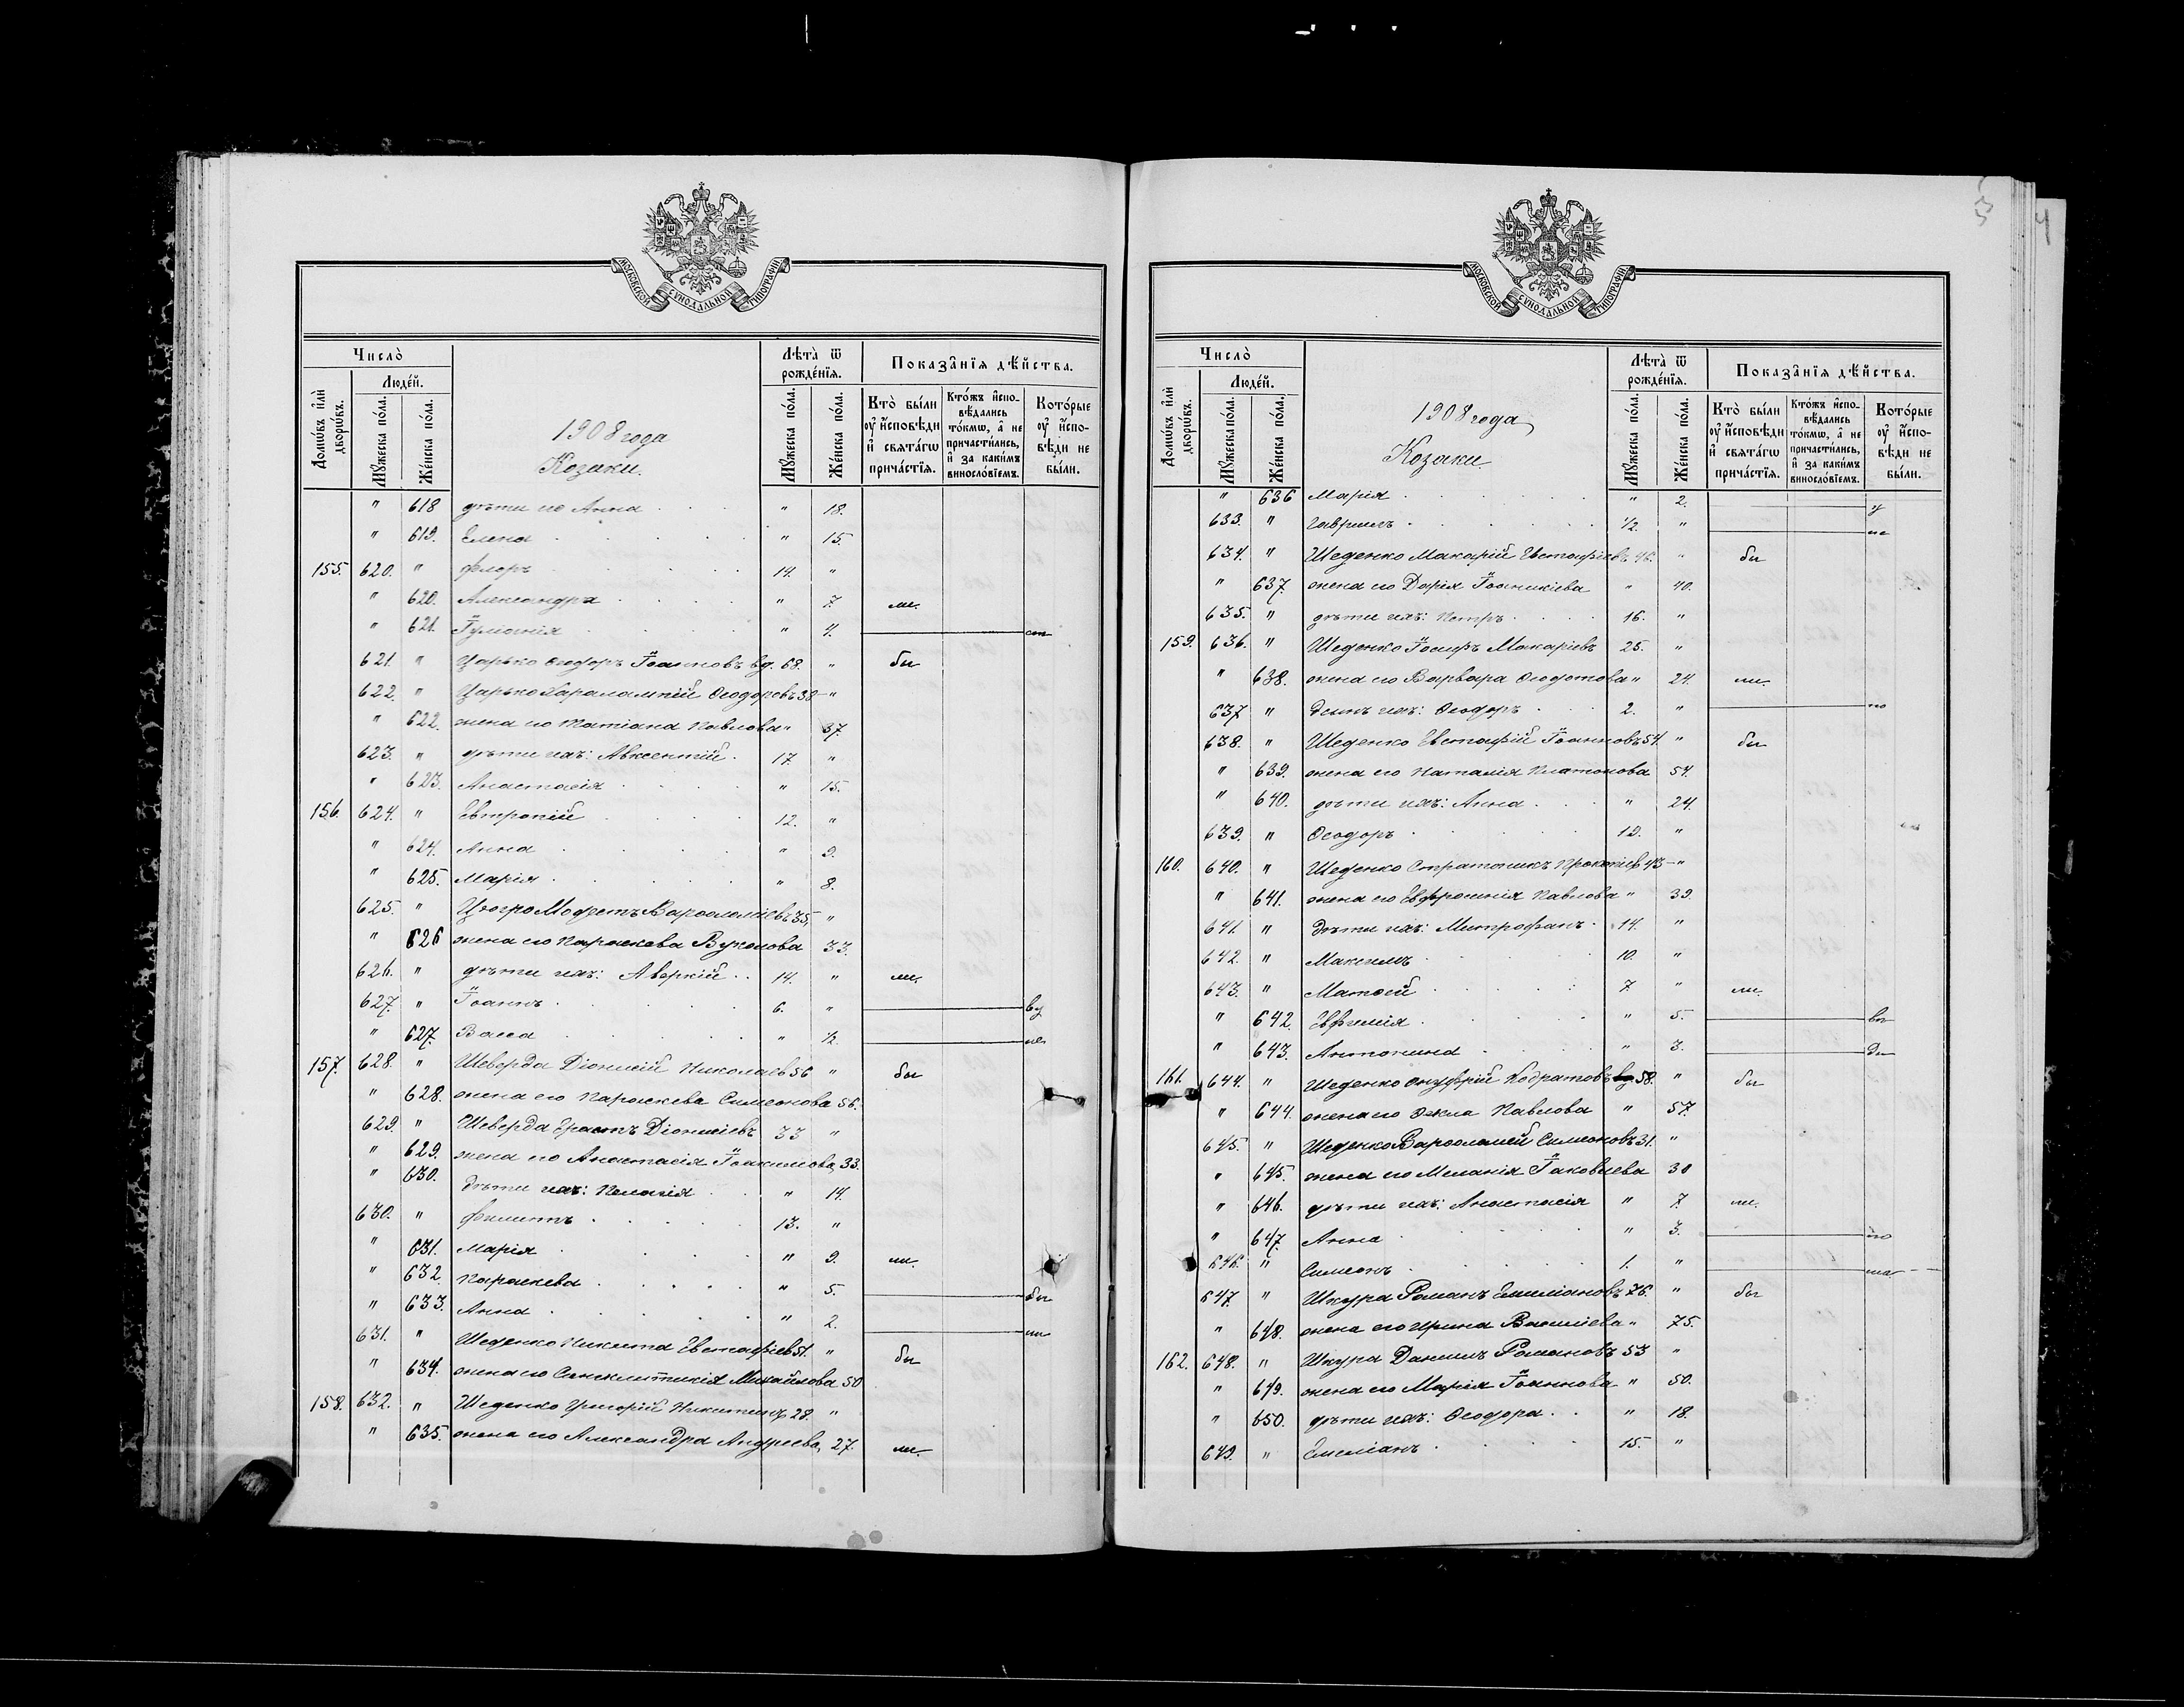 МОСКОВСКОЙ СѴНОДАЛЬНОЙ ТИПОГРАФІИ
Число̀
Домѡвъ и҆лѝ дворѡвъ.
Люде́й.
Мꙋ́жеска по́ла.
Же́нска по́ла.
1908 года
Козаки.
Лѣта̀ ѿ рожде́нїѧ.
Мꙋ́жеска по́ла.
Же́нска по́ла.
Показа̑нїѧ дѣ́йства.
Кто̀ бы́ли ᲂу҆ и҆́сповѣди и҆ свѧта́гѡ прича́стїѧ.
Кто́жъ и҆спо-вѣ́дались то́кмѡ, а҆ не причасти́лись, и҆ за каки́мъ винословїемъ.
Кото́рые ᲂу҆ и҆́спо-вѣди не бы́ли.
" 618 дѣти его Анна " 18.
" 619. Елена " 15.
155. 620. " Флоръ 14. "
" 620. Александра " 7. ли.
" 621. "4. ст
621. " Царько Ѳеодоръ Іоанновъ вд. 68. " бы
622. " Царько Харалампій Ѳеодоровъ 38 "
" 622. жена его Татіана Павлова " 37.
623. " дѣти ихъ: Авксентій 17. "
" 623. Анастасія " 15.
156. 624. " Евтропій 12. "
" 624. Анна " 9.
" 625. Марія " 8.
625. " Модестъ Варѳоломіевъ 35, "
" 626 жена его Параскева Вуколова 33.
626. " дѣти ихъ: Аверкій 14. " ли.
627. " Іоаннъ 6. " ву
" 627. Васса " ½.
157. 628. " Шеверда Діонисій Николаевъ 56 " бы
" 628. жена его Параскева Симеонова 56.
629. " Шеверда Ерастъ Діонисіевъ 33 "
" 629. жена его Анастасія Іоакимова, 33.
" 630. дѣти ихъ: Пелагія " 14.
630. " 13. "
" 631. Марія " 9. ли.
" 632. Параскева " 5. бы
" 633. Анна " 2. ли
631. " Шеденко Никита Евстафіевъ 51. " бы
" 634. жена его Синклитикія Михайлова 50
158. 632. " Шеденко Григорій Никитинъ 28. "
" 635. жена его Александра Андреева, 27. ли.
МОСКОВСКОЙ СѴНОДАЛЬНОЙ ТИПОГРАФІИ
Число̀
Домѡвъ и҆лѝ дворѡвъ.
Люде́й.
Мꙋ́жеска по́ла.
Же́нска по́ла.
1908 года
Козаки
Лѣта̀ ѿ рожде́нїѧ.
Мꙋ́жеска по́ла.
Же́нска по́ла.
Показа̑нїѧ дѣ́йства.
Кто̀ бы́ли ᲂу҆ и҆́сповѣди и҆ свѧта́гѡ прича́стїѧ.
Кто́жъ и҆спо-вѣ́дались то́кмѡ, а҆ не причасти́лись, и҆ за каки́мъ винословїемъ.
Кото́рые ᲂу҆ и҆́спо-вѣди не бы́ли.
" 636 Марія " 2. у
633. " Гавриилъ ½. "
634. " Шеденко Макарій Евстафіевъ 46. " бы
" 637. жена его Дарія Іоанникіева " 40.
635. " дѣти ихъ: Петръ 16. "
159. 636. " Шеденко Іосифъ Макаріевъ 25. "
" 638. жена его Варвара Ѳеодотова " 24. ли.
637 " сынъ ихъ: Ѳеодоръ 2. " по
638. " Шеденко Евстафій Іоанновъ 54. " бы
" 639. жена его Наталія Платонова 54.
" 640. дѣти ихъ: Анна " 24.
639. " Ѳеодоръ 19. "
160. 640. " Шеденко Стратоникъ 43 "
" 641. жена его Евфросинія Павлова " 39.
641. " дѣти ихъ: Митрофанъ 14. "
642. " Максимъ 10. "
643. " Матѳей 7. " ли.
" 642. Евфимія " 5.
" 643. Антонина " 3.
161. 644. " Шеденко Онуфрій Кодратовъ 58. " бы
" 644. жена его Ѳекла Павлова " 57.
645. " Шеденко Варѳоломей Симеоновъ 31. "
" 645. жена его Меланія Іаковлева 30
" 646. дѣти ихъ: Анастасія " 7. ли.
" 647. Анна " 3.
646. " Симеонъ 1. "
647. " Шкура Романъ Емиліановъ 76. " бы
" 648. жена его Ирина Василіева " 75.
162. 648. " Шкура Даниилъ Романовъ 53 "
" 649. жена его Марія Іоаннова " 50.
" 650. дѣти ихъ: Ѳеодора " 18.
649. " Емиліанъ 15. "